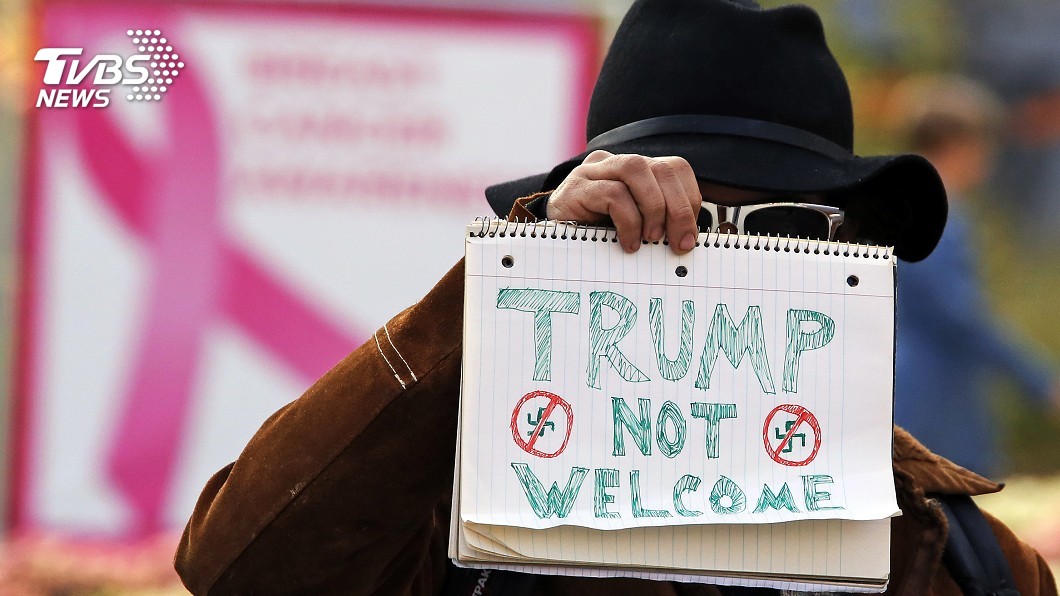 TVBS
NEWS
TRUMP
NOT
WELCOME